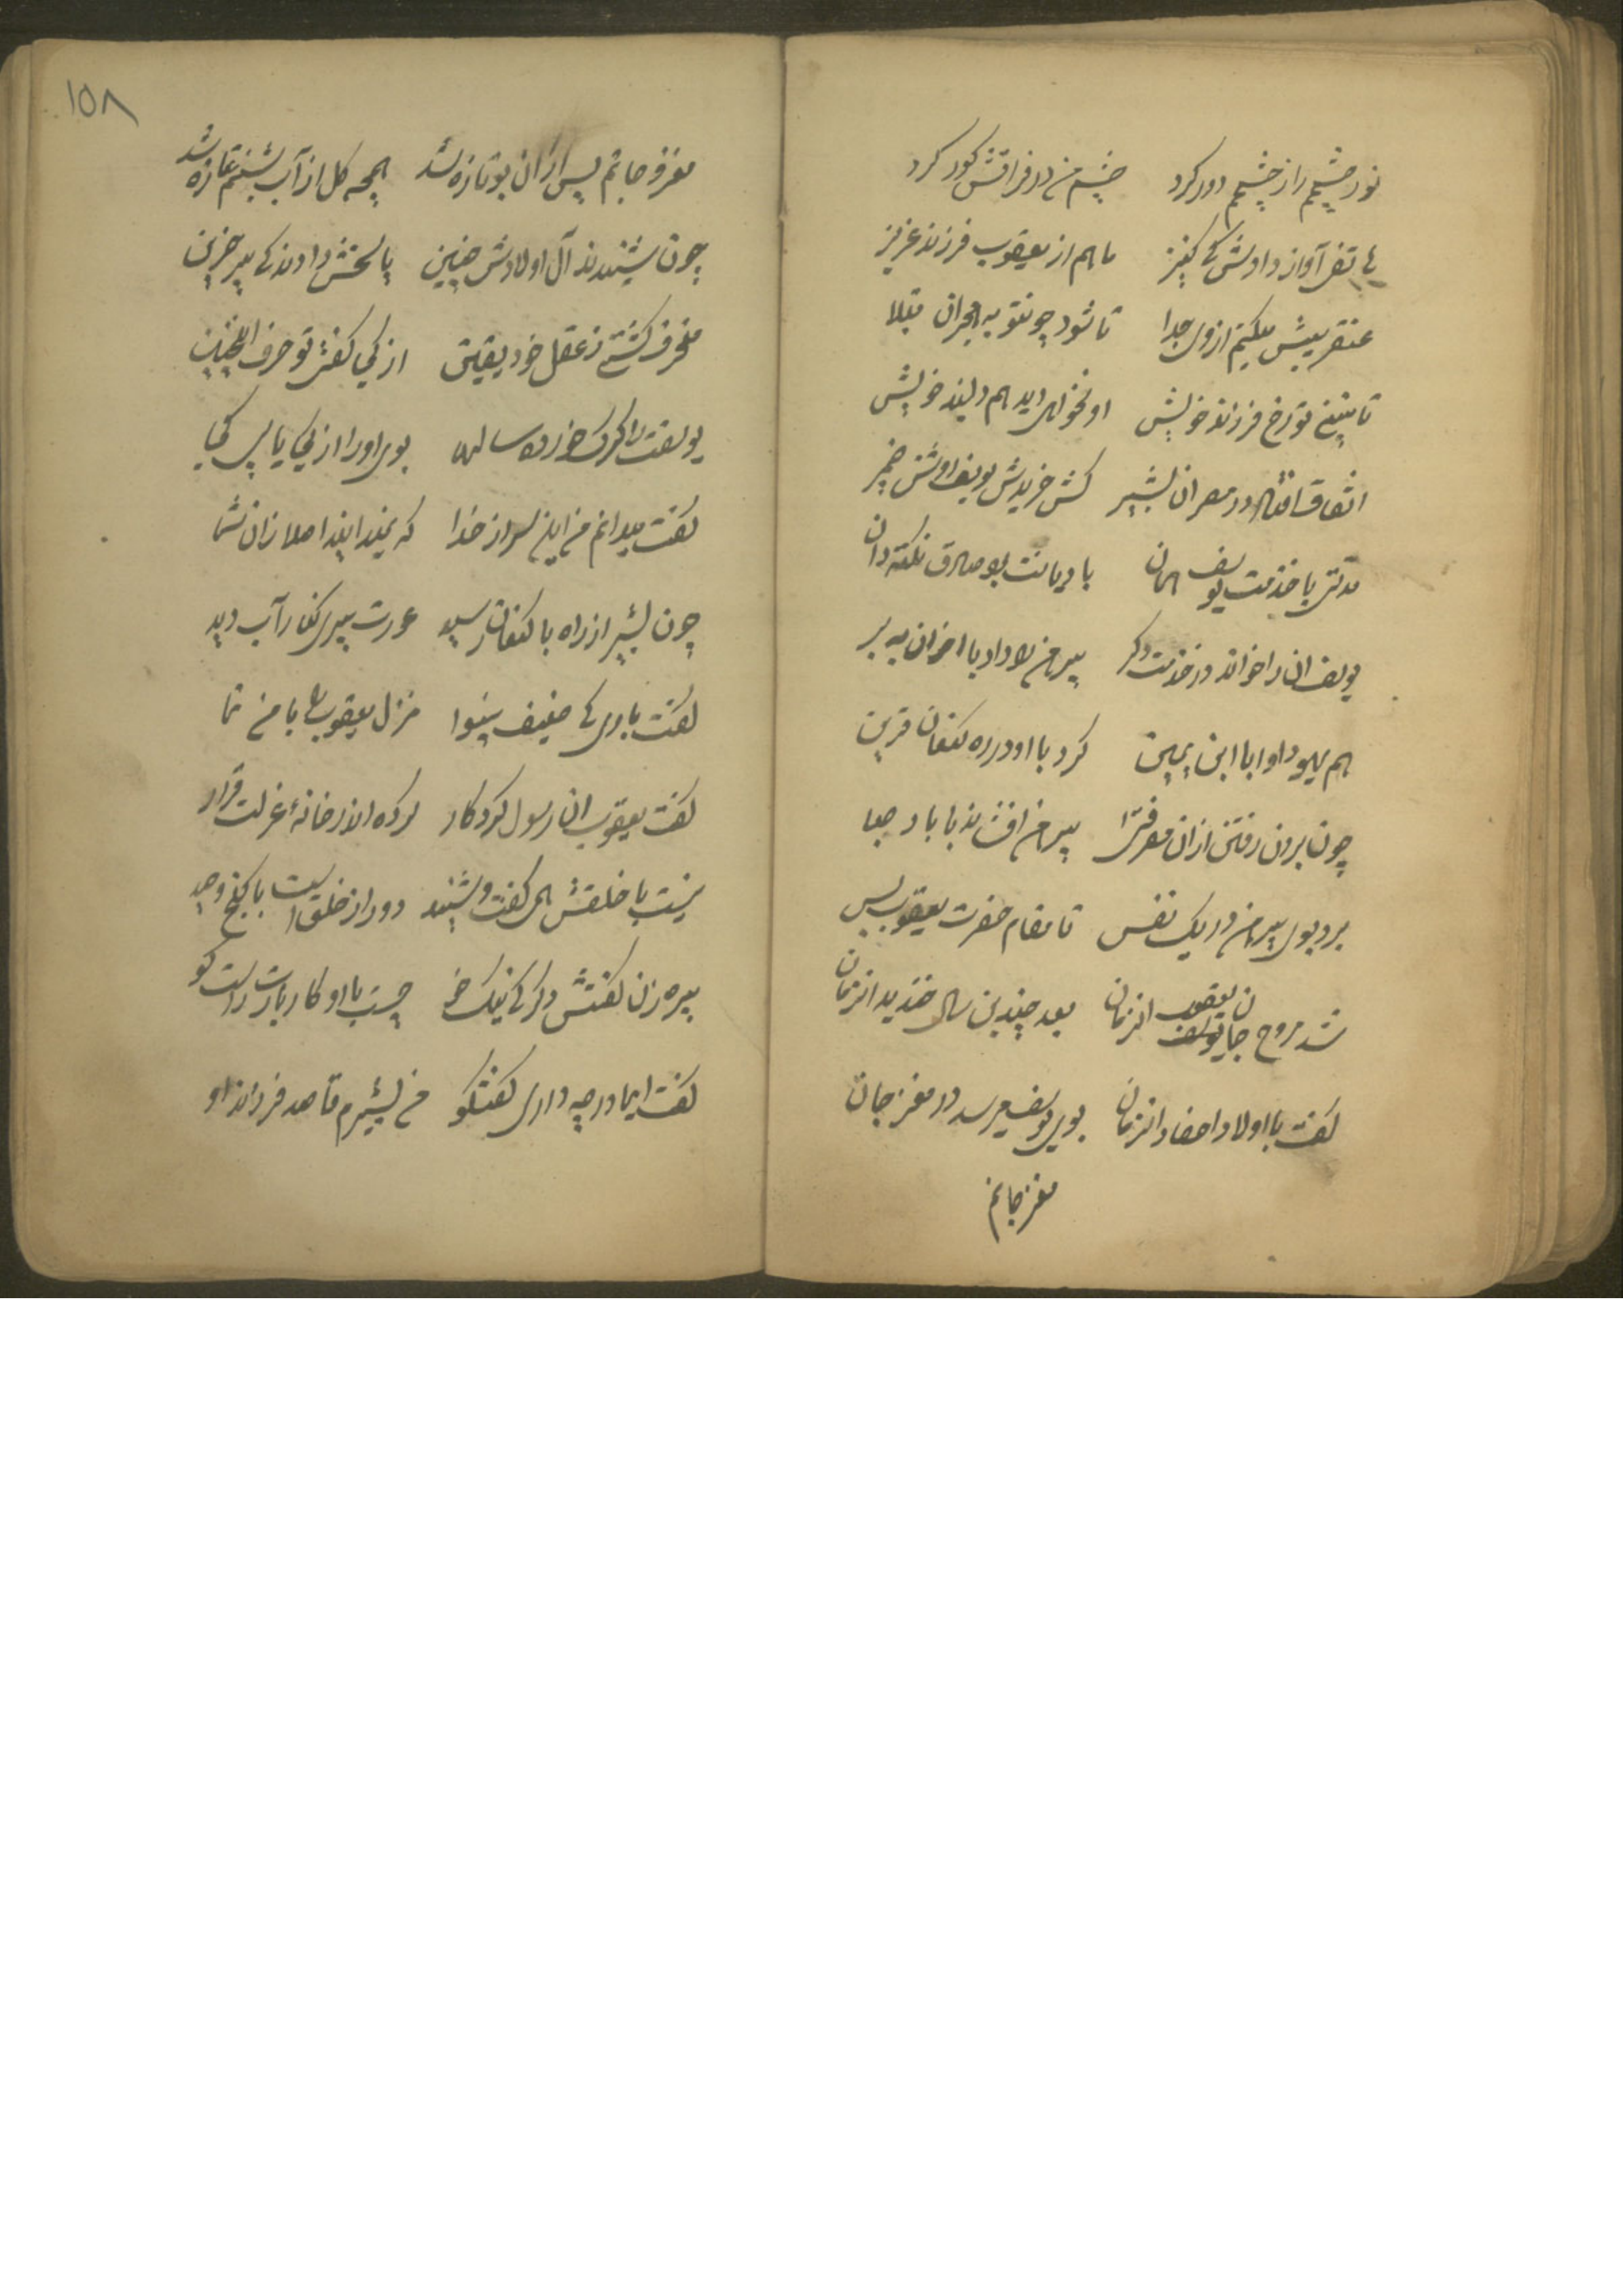 نور چشمم را ز چشمم دور کرد چشم من در فراقش کور کرد
هاتفی آواز دادش کی کنیز ما هم از یعقوب فرزند عزیز
عنقریبش میکنیم از وی جدا تا شود چون تو به هجران مبتلا
تا نبینی تو رخ فرزند خویش او نخواهی دید هم دلبند خویش
اتفاق افتاد در مصر ان بشیر کش خریدش یوسف روشن ضمیر
مدتی با خدمت یوسف همان با دیانت بود صادق نکته دان
یوسف ان را خواند در خدمت دگر پیرهن را داد با اخوان به بر
هم یهودا و ابا ابن یمین کرد با او در ره کنعان قرین
چون برون رفتن ازان مصر پیرهن افشاند با باد صبا
برد بوی پیرهن در یک نفس تا مقام حضرت یعقوب بس
شد روح جان یعقوب انزمان بعد چندین سال خندید انزمان
گفت با اولاد احفاد انزمان بوی یوسف میرسد در مغز جان
مغز جانم
۱۵۸
مغز و جانم پس ازان بو تازه شد همچه گل از آب شبنم تازه شد
چون شنیدند آل اولادش چنین پاسخش دادند کی پیر حزین
منحرف گشتی ز عقل خود یقین از کی گفتی تو حرف اینچنین
یوسفت را گرگ خورده سالها بوی او را از کی یابی کجا
گفت میدانم من این سر از خدا که نمیدانید اصلا زان شما
چون بشیر از راه با کنعان رسید عورت پیری کنار آب دید
گفت باری کی ضعیف بینوا منزل یعقوب را با من نما
گفت یعقوب ان رسول کردگار کرده اندر خانه عزلت قرار
نیست با خلقش همی گفت و شنید دور از خلق است با کنج وحید
پیره زن گفتش دگر کی نیک خو چیست با او کار بارت راست گو
گفت ایمادر چه داری گفتگو من بشیرم قاصد فرزند او